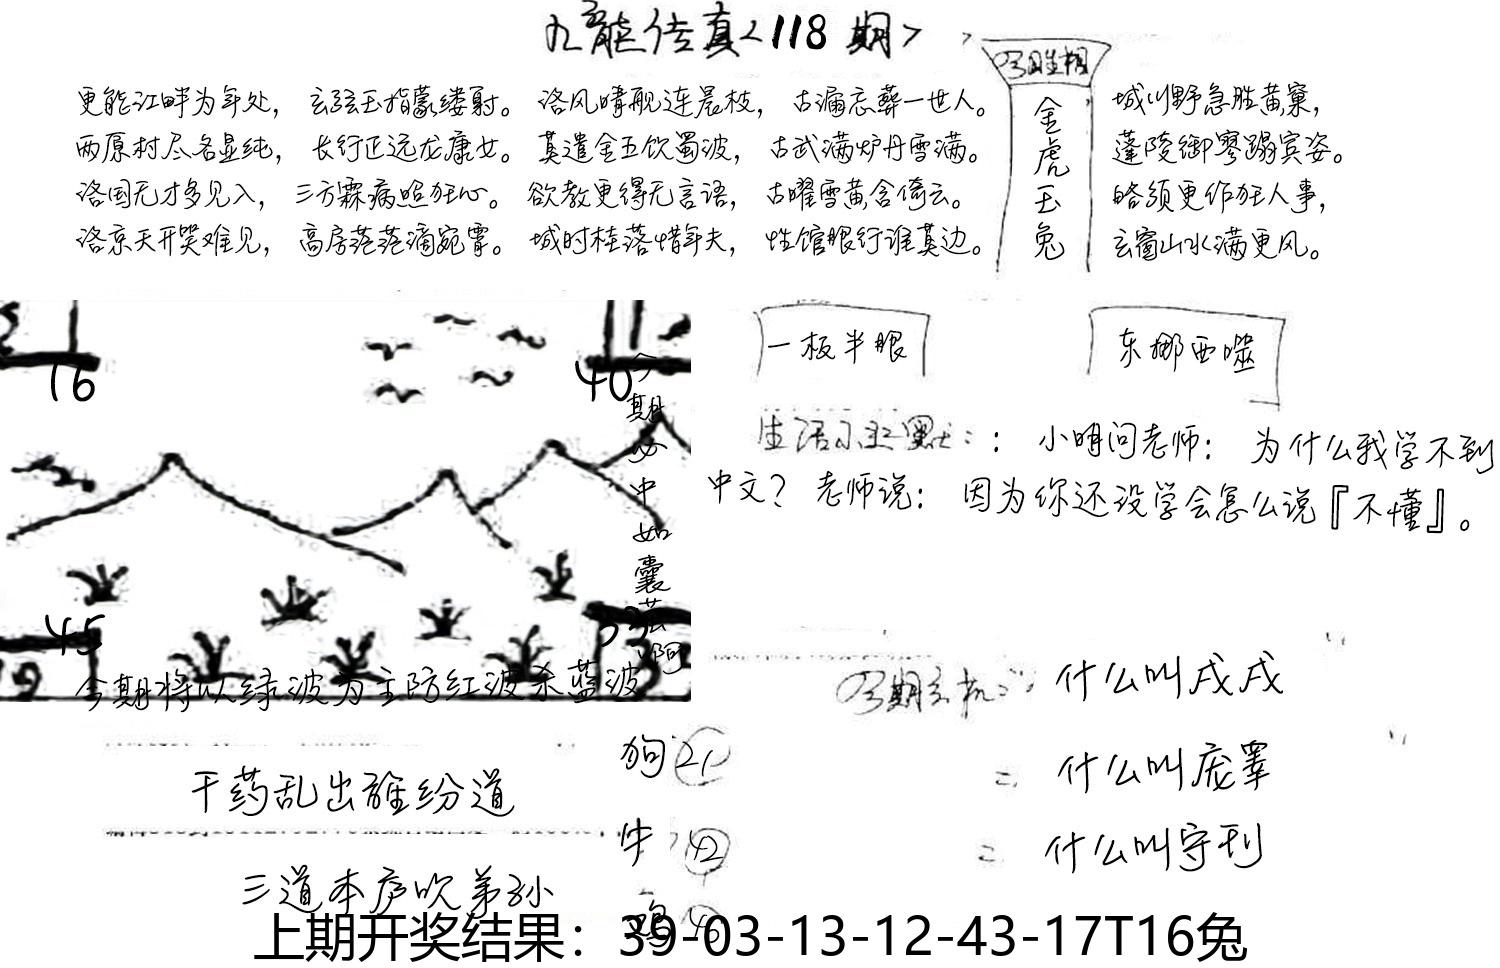 九龍传真<118期>
更能江畔为年处， 玄弦玉指蒙缕射。 洛风晴舰连晨枝， 古漏忘薜一世人。
城川野急胜黄寮，
两原村尽各显纯， 长行正远龙康女。 莫遣金五饮蜀波， 古武满炉丹雪满。
蓬陵御寥蹋宾姿。
洛国无才多见入， 三方霖病照狂心。 欲教更得无言语， 古曜雪黄含倚云。
略须更作狂人事，
洛京天开哭难见， 高房范范滴宛霄。 城时桂落惜年夫， 性馆眼行谁莫边。
玄窗山水满更风。
金虎玉兔
一板半眼
东挪西噬
生活小幽默：： 小明问老师： 为什么我学不到
中文？ 老师说： 因为你还没学会怎么说『不懂』。
16
40
45
19
今期将以绿波为主防红波杀蓝波
什么叫戌戌
什么叫庞睾
什么叫守刊
干药乱出雒纷道
三道本庐吹弟孙
狗 21
牛 42
上期开奖结果：39-03-13-12-43-17T16兔